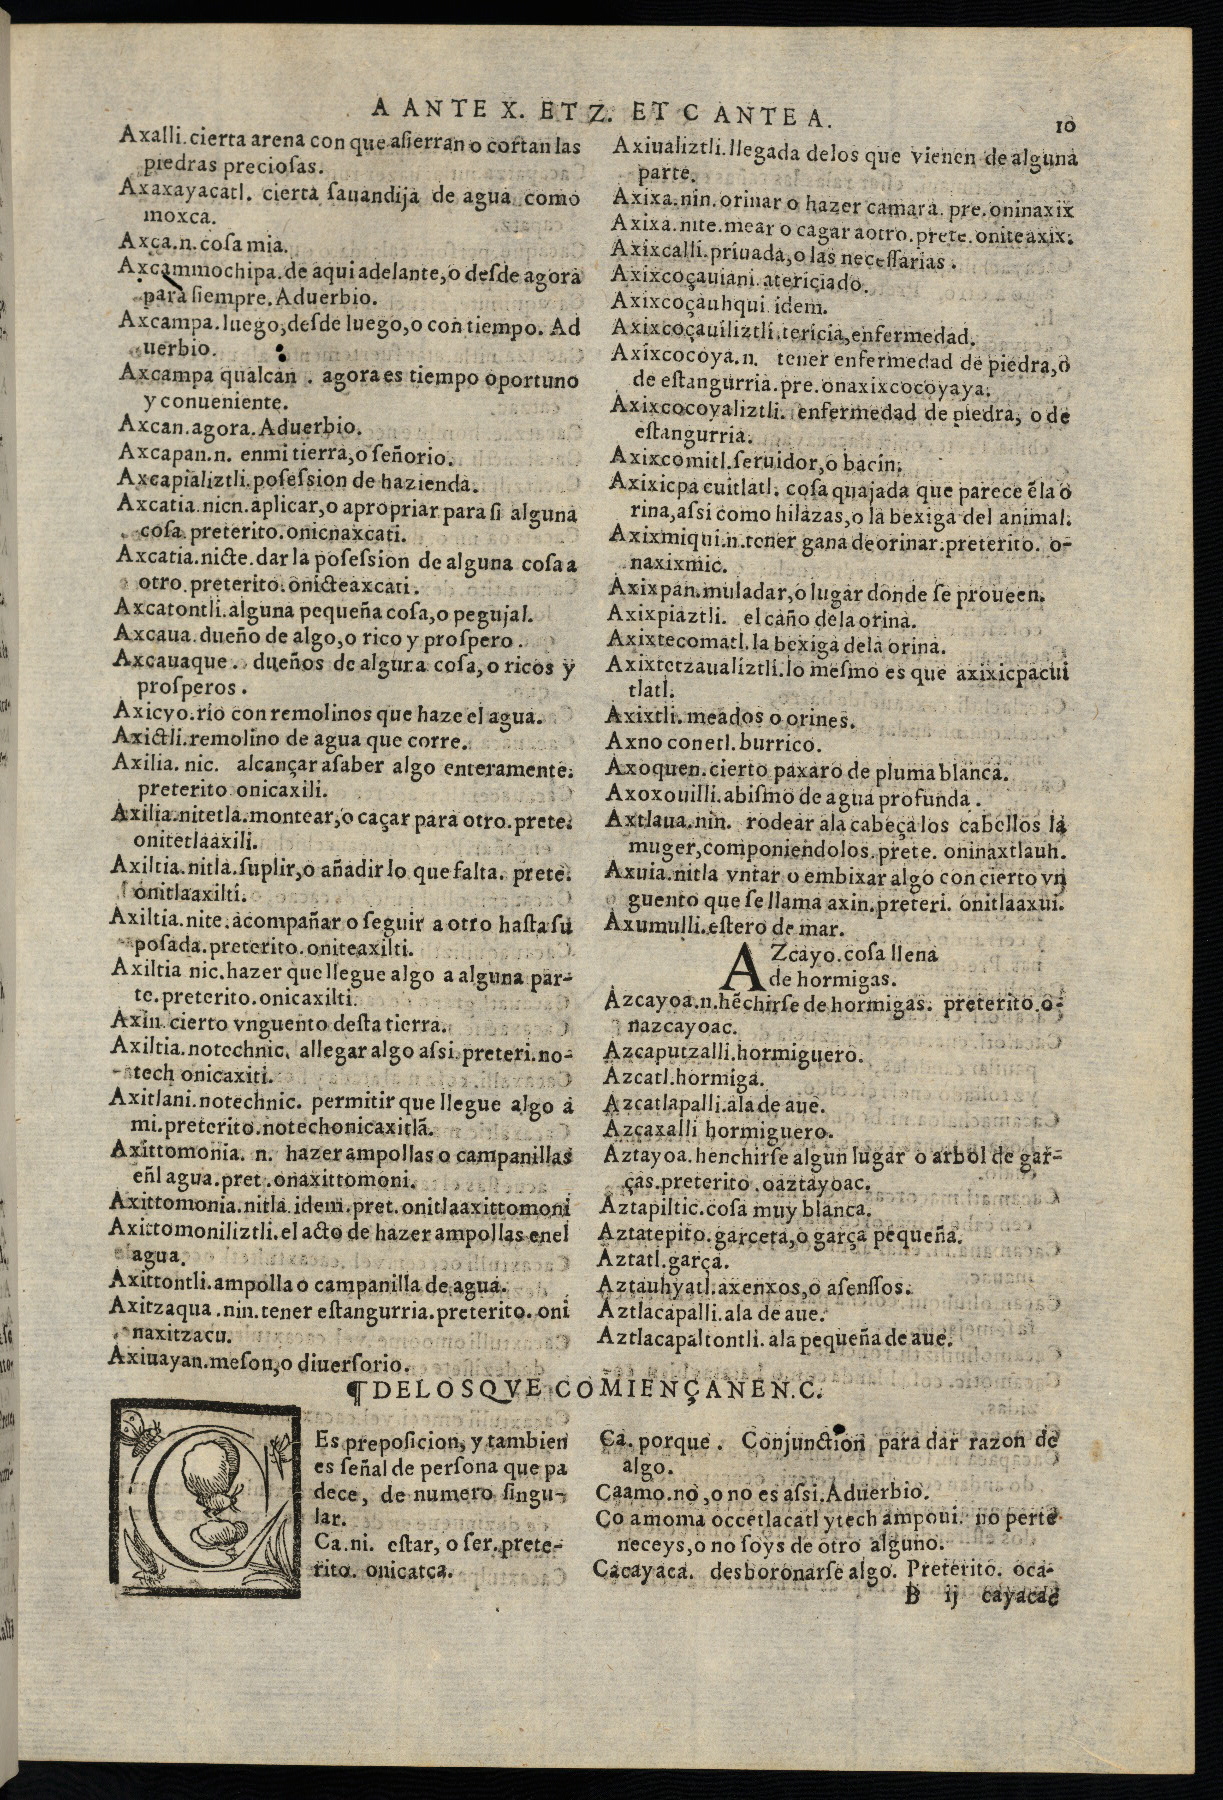 A ANTE X. ET Z. ET C ANTE A.
10
Axalli. cierta arena con que aſierran o cortan las
piedras precioſas.
Axaxayacatl. cierta ſauandija de agua como
moxca.
Axca.n. coſa mia.
Axcammochipa. de aqui adelante, o deſde agora
para ſiempre. Aduerbio.
Axcampa. luego, deſde luego, o con tiempo. Ad
uerbio.
Axcampa qualcan . agora es tiempo oportuno
y conueniente.
Axcan. agora. Aduerbio.
Axcapan.n. en mi tierra, o ſeñorio.
Axcapializtli. poſeſsion de hazienda.
Axcatia. nicn. aplicar, o apropriar para ſi alguna
coſa. preterito. onicnaxcati.
Axcatia. nicte. dar la poſeſsion de alguna coſa a
otro. preterito. onicteaxcati.
Axcatontli. alguna pequeña coſa, o pegujal.
Axcaua. dueño de algo, o rico y proſpero.
Axcauaque. dueños de alguna coſa, o ricos y
proſperos.
Axicyo. rio con remolinos que haze el agua.
Axictli. remolino de agua que corre.
Axilia. nic. alcançar a ſaber algo enteramente.
preterito onicaxili.
Axilia. nitetla. montear, o caçar para otro. prete.
onitetlaaxili.
Axiltia. nitla. ſuplir, o añadir lo que falta. prete.
onitlaaxilti.
Axiltia. nite. acompañar o ſeguir a otro haſta ſu
poſada. preterito. oniteaxilti.
Axiltia nic. hazer que llegue algo a alguna par-
te. preterito. onicaxilti.
Axin. cierto vnguento deſta tierra.
Axiltia. notechnic. allegar algo aſsi. preteri. no-
tech onicaxiti.
Axitlani. notechnic. permitir que llegue algo a
mi. preterito. notechonicaxitlã.
Axittomonia. n. hazer ampollas o campanillas
eñl agua. pret. onaxittomoni.
Axittomonia. nitla. idem. pret. onitlaaxittomoni
Axittomoniliztli. el acto de hazer ampollas enel
agua.
Axittontli. ampolla o campanilla de agua.
Axitzaqua. nin. tener eſtangurria. preterito. oni
naxitzacu.
Axiuayan. meſon, o diuerſorio.
Axiualiztli. llegada delos que vienen de alguna
parte.
Axixa. nin. orinar o hazer camara. pre. oninaxix
Axixa. nite. mear o cagar a otro. prete. oniteaxix.
Axixcalli. priuada, o las neceſſarias.
Axixcoçauiani. atericiado.
Axixcoçauhqui. idem.
Axixcoçauiliztli. tericia, enfermedad.
Axixcocoya.n. tener enfermedad de piedra, o
de eſtangurria. pre. onaxixcocoyaya.
Axixcocoyaliztli. enfermedad de piedra, o de
eſtangurria.
Axixcomitl. ſeruidor, o bacin.
Axixicpa cuitlatl. coſa quajada que parece ẽla o
rina, aſsi como hilazas, o la bexiga del animal.
Axixmiqui.n. tener gana de orinar. preterito. o-
naxixmic.
Axixpan. muladar, o lugar donde ſe proueen.
Axixpiaztli. el caño dela orina.
Axixtecomatl. la bexiga dela orina.
Axixtetzaualiztli. lo meſmo es que axixicpacui
tlatl.
Axixtli. meados o orines.
Axno conetl. burrico.
Axoquen. cierto paxaro de pluma blanca.
Axoxouilli. abiſmo de agua profunda.
Axtlaua. nin. rodear ala cabeça los cabellos la
muger, componiendolos. prete. oninaxtlauh.
Axuia. nitla vntar o embixar algo con cierto vn
guento que ſe llama axin. preteri. onitlaaxui.
Axumulli. eſtero de mar.
AZcayo. coſa llena
de hormigas.
Azcayoa.n. hẽchirſe de hormigas. preterito. o-
nazcayoac.
Azcaputzalli. hormiguero.
Azcatl. hormiga.
Azcatlapalli. ala de aue.
Azcaxalli hormiguero.
Aztayoa. henchirſe algun lugar o arbol de gar-
ças. preterito. oaztayoac.
Aztapiltic. coſa muy blanca.
Aztatepito. garceta, o garça pequeña.
Aztatl. garça.
Aztauhyatl. axenxos, o aſenſſos.
Aztlacapalli. ala de aue.
Aztlacapaltontli. ala pequeña de aue.
¶DELOSQVE COMIENÇANEN.C.
C Es prepoſicion, y tambien
es ſeñal de perſona que pa
dece, de numero ſingu-
lar.
Ca.ni. eſtar, o ſer. prete-
rito. onicatca.
Ca. porque. Conjunction para dar razon de
algo.
Caamo. no, o no es aſsi. Aduerbio.
Co amoma occetlacatl ytech ampoui. no perte
neceys, o no ſoys de otro alguno.
Cacayaca. desboronarſe algo. Preterito. oca-
B ij cayacac